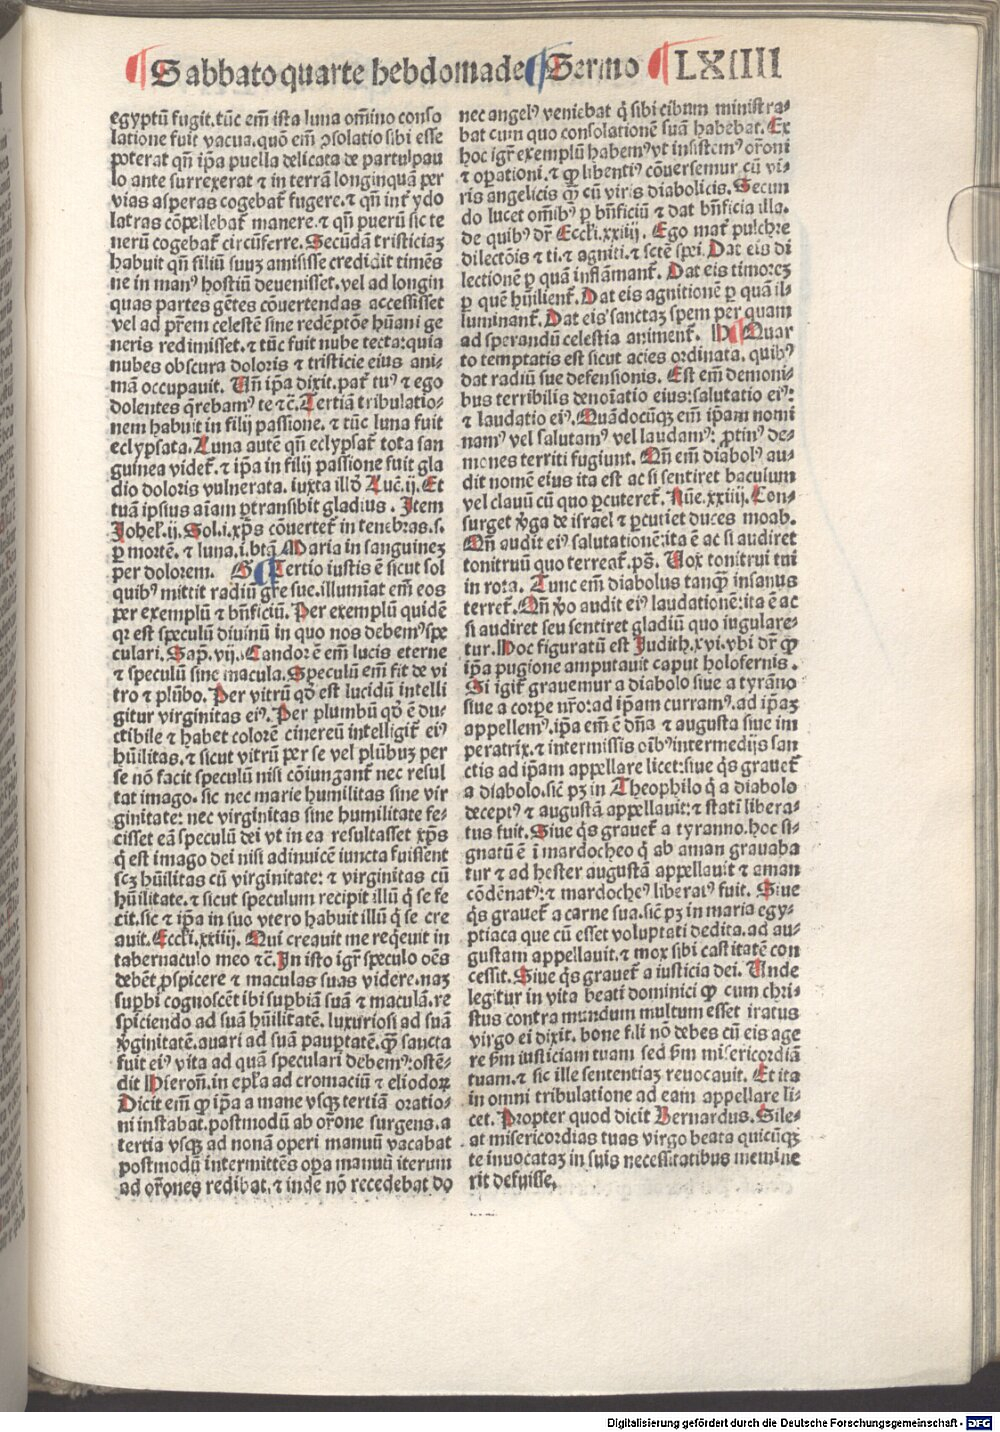 Sabbato quarte hebdomade Sermo LXIIII
egyptū fugit. tūc em̄ ista luna om̄ino conso
latione fuit vacua. quō em̄ ꝯsolatio sibi esse
poterat qn̄ ip̄a puella delicata de partu pau
lo ante surrexerat ⁊ in terrā longinquā per
vias asperas cogebat̄ fugere. ⁊ qn̄ int̄ ydo
latras cōpellebat̄ manere. ⁊ qn̄ puerū sic te
nerū cogebat̄ circūferre. Secūdā tristiciaꝫ
habuit qn̄ filiū suuꝫ amisisse credidit timēs
ne in manꝰ hostiū deuenisset. vel ad longin
quas partes gētes cōuertendas accessisset
vel ad pr̄em celestē sine redēptōe hūani ge
neris redimisset. ⁊ tūc fuit nube tecta: quia
nubes obscura doloris ⁊ tristicie eius ani-
mā occupauit. Un̄ ip̄a dixit. pat̄ tuꝰ ⁊ ego
dolentes q̄rebamꝰ te ⁊c̄. Tertiā tribulatio-
nem habuit in filij passione. ⁊ tūc luna fuit
eclypsata. Luna autē qn̄ eclypsat̄ tota san
guinea videt̄. ⁊ ip̄a in filij passione fuit gla
dio doloris vulnerata. iuxta illd̄ Luc̄. ij. Et
tuā ipsius aīam ꝑtransibit gladius. Item
Johel̄. ij. Sol. i. xp̄s cōuertet̄ in tenebras. s.
ꝑ mortē. ⁊ luna. i. btā Maria in sanguineꝫ
per dolorem. G Tertio iustis ē sicut sol
quibꝰ mittit radiū gr̄e sue. illumīat em̄ eos
per exemplū ⁊ bn̄ficiū. Per exemplū quidē
qꝛ est speculū diuinū in quo nos debemꝰ spe
culari. Sap̄. vij. Candor ē em̄ lucis eterne
⁊ speculū sine macula. Speculū em̄ fit de vi
tro ⁊ plūbo. Per vitrū qd̄ est lucidū intelli
gitur virginitas eiꝰ. Per plumbū qd̄ ē du-
ctibile ⁊ habet colorē cinereū intelligit̄ eiꝰ
hūilitas. ⁊ sicut vitrū per se vel plūbuꝫ per
se nō facit speculū nisi cōiungant̄ nec resul
tat imago. sic nec marie humilitas sine vir
ginitate: nec virginitas sine humilitate fe-
cisset eā speculū dei vt in ea resultasset xp̄s
q̄ est imago dei nisi adinuicē iuncta fuissent
scꝫ hūilitas cū virginitate: ⁊ virginitas cū
hūilitate. ⁊ sicut speculum recipit illū q̄ se fe
cit. sic ⁊ ip̄a in suo vtero habuit illū q̄ se cre
auit. Eccl̄i. xxiiij. Qui creauit me reqeuit in
tabernaculo meo ⁊c̄. In isto igr̄ speculo oēs
debēt ꝓspicere ⁊ maculas suas videre. naꝫ
suꝑbi cognoscēt ibi suꝑbiā suā ⁊ maculā. re
spiciendo ad suā hūilitatē. luxuriosi ad suā
v̄ginitatē. auari ad suā pauꝑtatē. qꝫ sancta
fuit eiꝰ vita ad quā speculari debemꝰ: ostē-
dit Hieron̄. in ep̄la ad cromaciū ⁊ eliodoꝝ
Dicit em̄ ꝙ ip̄a a mane vsqꝫ tertiā oratio-
ni instabat. postmodū ab or̄one surgens. a
tertia vsqꝫ ad nonā operi manuū vacabat
postmodū intermittēs oꝑa manuū iterum
ad or̄ones redibat. ⁊ inde nō recedebat do
nec angelꝰ veniebat q̄ sibi cibum ministra-
bat cum quo consolationē suā habebat. Ex
hoc igr̄ exemplū habemꝰ vt insistemꝰ or̄oni
⁊ oꝑationi. ⁊ ꝙ libentiꝰ cōuersemur cū vi-
ris angelicis qꝫ cū viris diabolicis. Secun
do lucet om̄ibꝰ ꝑ bn̄ficiū ⁊ dat bn̄ficia illa.
de quibꝰ dr̄ Eccl̄i. xxiiij. Ego mat̄ pulchre
dilectōis ⁊ ti. ⁊ agniti. ⁊ sctē spei. Dat eis di
lectionē ꝑ quā inflāmant̄. Dat eis timoreꝫ
ꝑ quē hūilient̄. Dat eis agnitionē ꝑ quā il-
luminant̄. Dat eis sanctaꝫ spem per quam
ad sperandū celestia animent̄. H Quar
to temptatis est sicut acies ordinata. quibꝰ
dat radiū sue defensionis. Est em̄ demoni-
bus terribilis denoīatio eius: salutatio eiꝰ:
⁊ laudatio eiꝰ. Quādocūqꝫ em̄ ip̄am nomi
namꝰ vel salutamꝰ vel laudamꝰ: ꝓtinꝰ de-
mones territi fugiunt. Qn̄ em̄ diabolꝰ au-
dit nomē eius ita est ac si sentiret baculum
vel clauū cū quo ꝑcuteret̄. Nūe. xxiiij. Con-
surget v̄ga de israel ⁊ ꝑcutiet duces moab.
Qn̄ audit eiꝰ salutationē: ita ē ac si audiret
tonitruū quo terreat̄. ps̄. Uox tonitrui tui
in rota. Tunc em̄ diabolus tanqꝫ insanus
terret̄. Qn̄ v̄o audit eiꝰ laudationē: ita ē ac
si audiret seu sentiret gladiū quo iugulare-
tur. Hoc figuratū est Judith. xvi. vbi dr̄ ꝙ
ip̄a pugione amputauit caput holofernis.
Si igit̄ grauemur a diabolo siue a tyrāno
siue a corꝑe nr̄o: ad ip̄am curramꝰ. ad ip̄aꝫ
appellemꝰ. ip̄a em̄ ē dn̄a ⁊ augusta siue im
peratrix. ⁊ intermissis oībꝰ intermedijs san
ctis ad ip̄am appellare licet: siue q̄s grauet̄
a diabolo. sic̄ pꝫ in Theophilo q̄ a diabolo
deceptꝰ ⁊ augustā appellauit: ⁊ statī libera-
tus fuit. Siue q̄s grauet̄ a tyranno. hoc si-
gnatū ē ī mardocheo q̄ ab aman grauaba
tur ⁊ ad hester augustā appellauit ⁊ aman
cōdēnatꝰ: ⁊ mardocheꝰ liberatꝰ fuit. Siue
q̄s grauet̄ a carne sua. sic̄ pꝫ in maria egy-
ptiaca que cū esset voluptati dedita. ad au-
gustam appellauit. ⁊ mox sibi castitatē con
cessit. Siue q̄s grauet̄ a iusticia dei. Unde
legitur in vita beati dominici ꝙ cum chri-
stus contra mundum multum esset iratus
virgo ei dixit. bone fili nō debes cū eis age
re ẜm iusticiam tuam sed ẜm misericordiā
tuam. ⁊ sic ille sententiaꝫ reuocauit. Et ita
in omni tribulatione ad eam appellare li-
cet. Propter quod dicit Bernardus. Sile-
at misericordias tuas virgo beata quicūqꝫ
te inuocataꝫ in suis necessitatibus memine
rit defuisse.
Digitalisierung gefördert durch die Deutsche Forschungsgemeinschaft - DFG